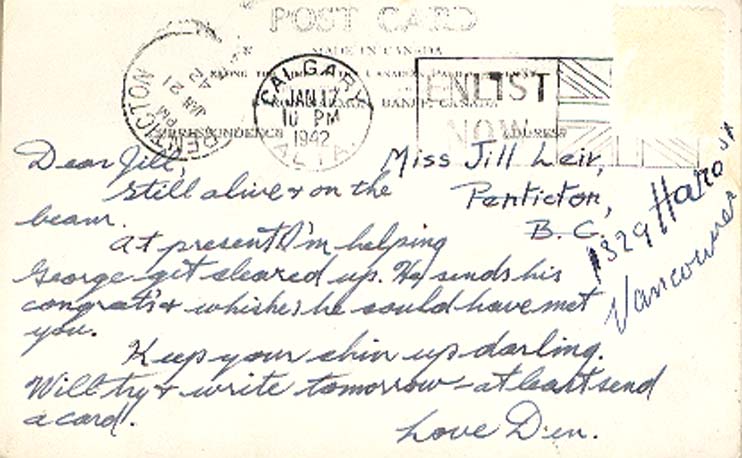 POST CARD
MADE IN CANADA
ALONG THE LINE OF THE CANADIAN PACIFIC
BANFF, CANADA
CORRESPONDENCE
ADDRESS
PENTICTON
PM
JAN 21
42
CALGARY
JAN 17
10 PM
1942
ALTA.
ENLIST
NOW
Dear Jill,
Still alive & on the
beam.
At present I'm helping
George get cleared up. He sends his
congrats & whishes he could have met
you.
Keep your chin up darling.
Will try & write tomorrow – at least send
a card.
Love Den.
Miss Jill Leir,
Penticton,
B.C.
1329 Haro St
Vancouver